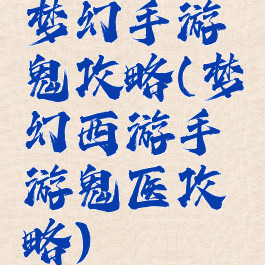 梦幻手游
鬼攻略(梦
幻西游手
游鬼医攻
略)